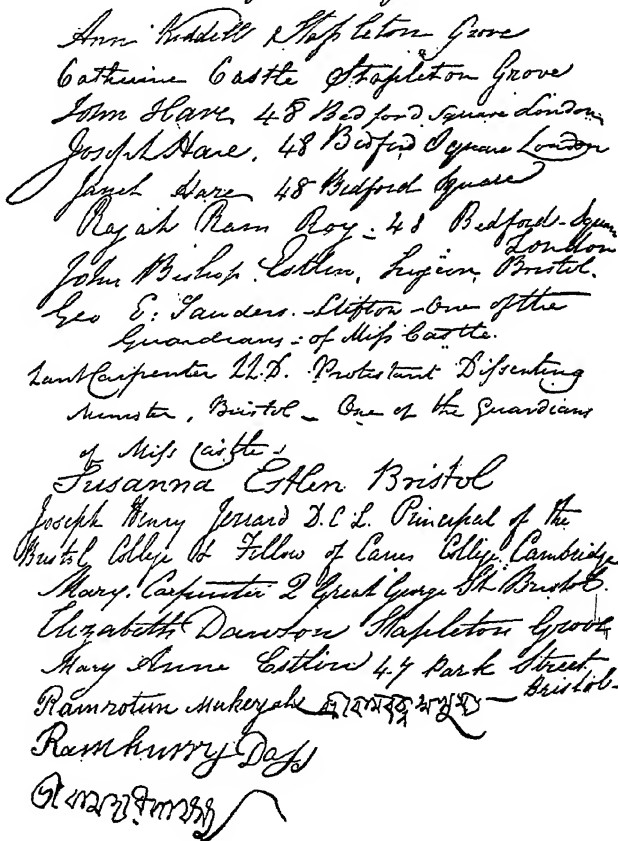 Ann Kiddell Stapleton Grove
Catherine Castle Stapleton Grove
John Hare 48 Bedford Square London
Joseph Hare, 48 Bedford Square London
Janet Hare 48 Bedford Square
Rajah Ram Roy - 48 Bedford-Square London
John Bishop Estlin, Surgeon, Bristol.
Geo E: Sanders - Clifton - One of the
Guardians - of Miss Castle.
Lant Carpenter LL.D. Protestant Dissenting
Minister, Bristol - One of the Guardians
of Miss Castle -
Susanna Estlin Bristol
Joseph Henry Jerrard D.C.L. Principal of the
Bristol College & Fellow of Caius College, Cambridge
Mary Carpenter 2 Great George St. Bristol.
Elizabeth Dawson Stapleton Grove
Mary Anne Estlin 47 Park Street Bristol -
Ramrotun Mukerjah
Ramhurry Dass